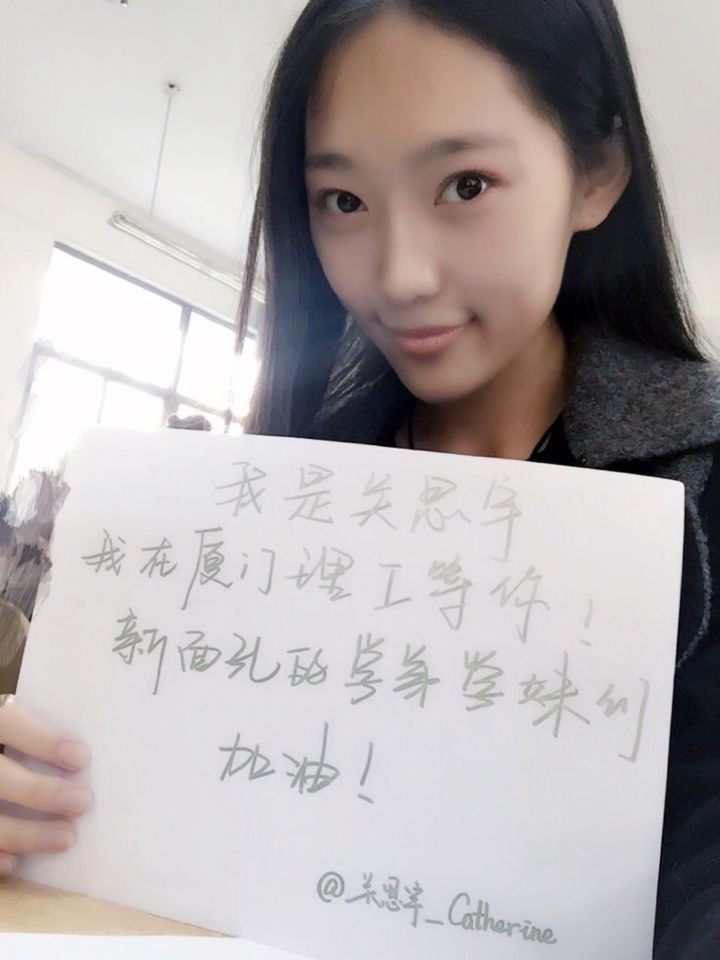 我是关思宇
我在厦门理工等你！
新面孔的学弟学妹们
加油！
@关思宇_Catherine